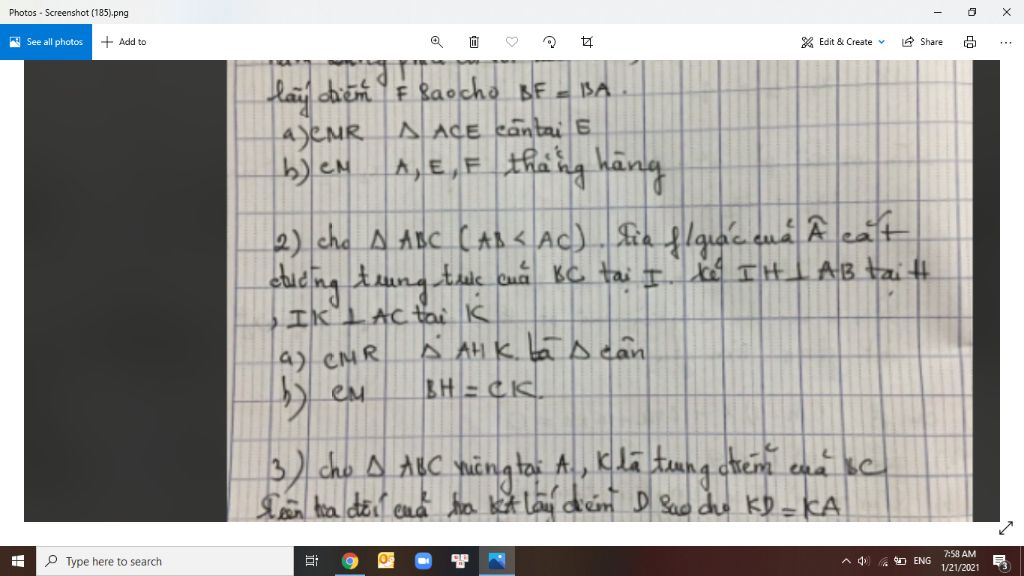 Photos - Screenshot (185).png
See all photos
Add to
Edit & Create
Share
lấy điểm F sao cho BF = BA.
a) CMR Δ ACE cân tại E
b) CM A, E, F thẳng hàng
2) cho Δ ABC (AB < AC). Tia f/giác của Â cắt
đường trung trực của BC tại I. kẻ IH ⊥ AB tại H
, IK ⊥ AC tại K
a) CMR Δ AHK là Δ cân
b) CM BH = CK.
3) cho Δ ABC vuông tại A, K là trung điểm của BC
Trên tia đối của tia KA lấy điểm D sao cho KD = KA
Type here to search
ENG
7:58 AM
1/21/2021
3